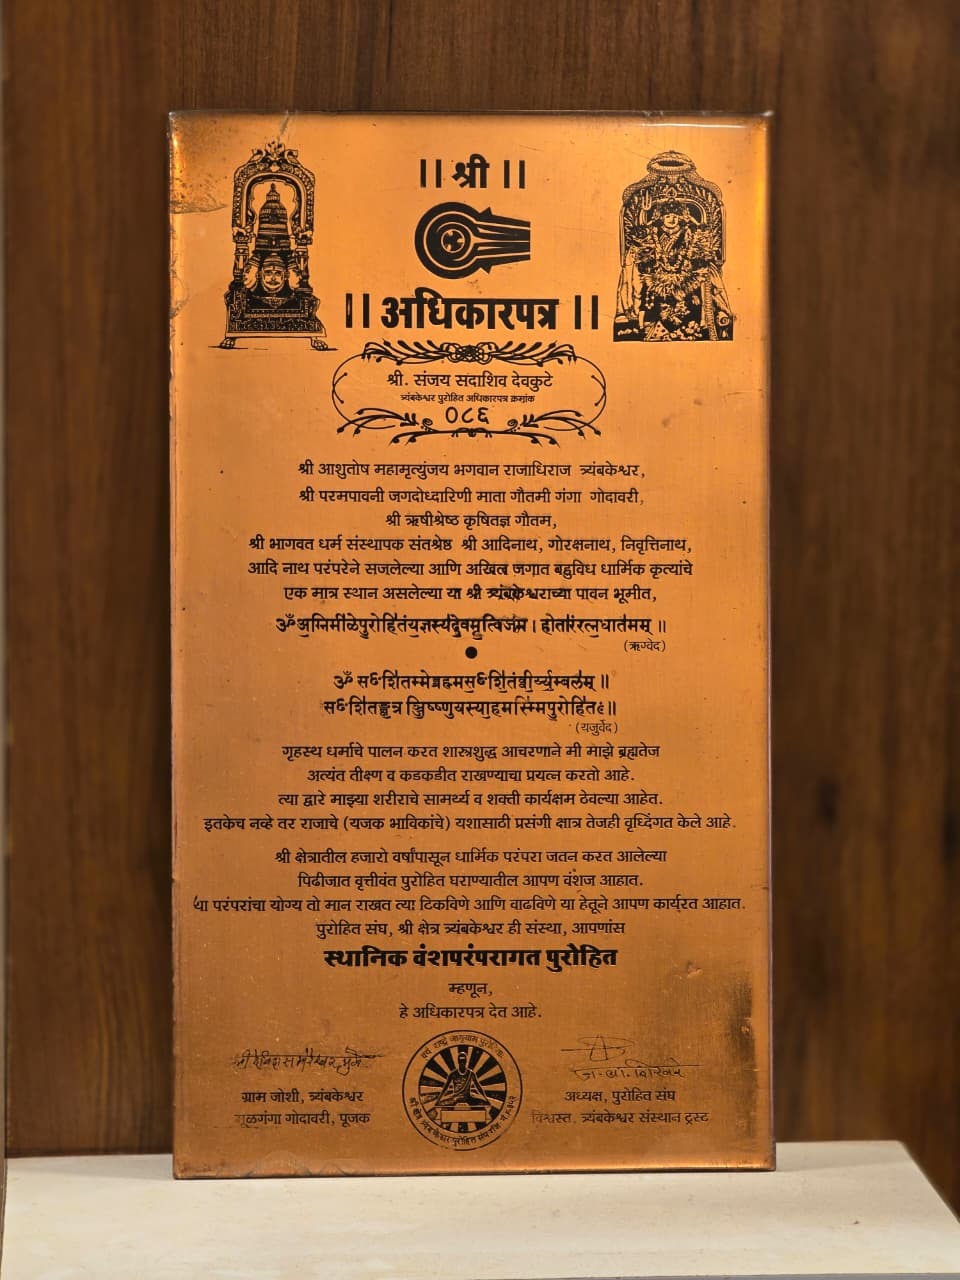 || श्री ||
|| अधिकारपत्र ||
श्री. संजय सदाशिव देवकुटे
त्र्यंबकेश्वर पुरोहित अधिकारपत्र क्रमांक
०८६
श्री आशुतोष महामृत्युंजय भगवान राजाधिराज त्र्यंबकेश्वर,
श्री परमपावनी जगदोध्दारिणी माता गौतमी गंगा गोदावरी,
श्री ऋषीश्रेष्ठ कृषितज्ञ गौतम,
श्री भागवत धर्म संस्थापक संतश्रेष्ठ श्री आदिनाथ, गोरक्षनाथ, निवृत्तिनाथ,
आदि नाथ परंपरेने सजलेल्या आणि अखिल जगात बहुविध धार्मिक कृत्यांचे
एक मात्र स्थान असलेल्या या श्री त्र्यंबकेश्वराच्या पावन भूमीत,
ॐ अग्निमीळे पुरोहितं यज्ञस्य देवमृत्विजम् । होतारं रत्नधातमम् ॥
(ऋग्वेद)
ॐ
(यजुर्वेद)
गृहस्थ धर्माचे पालन करत शास्त्रशुद्ध आचरणाने मी माझे ब्रह्मतेज
अत्यंत तीक्ष्ण व कडकडीत राखण्याचा प्रयत्न करतो आहे.
त्या द्वारे माझ्या शरीराचे सामर्थ्य व शक्ती कार्यक्षम ठेवल्या आहेत.
इतकेच नव्हे तर राजाचे (यजक भाविकांचे) यशासाठी प्रसंगी क्षात्र तेजही वृध्दिंगत केले आहे.
श्री क्षेत्रातील हजारो वर्षांपासून धार्मिक परंपरा जतन करत आलेल्या
पिढीजात वृत्तीवंत पुरोहित घराण्यातील आपण वंशज आहात.
या परंपरांचा योग्य तो मान राखत त्या टिकविणे आणि वाढविणे या हेतूने आपण कार्यरत आहात.
पुरोहित संघ, श्री क्षेत्र त्र्यंबकेश्वर ही संस्था, आपणांस
स्थानिक वंशपरंपरागत पुरोहित
म्हणून,
हे अधिकारपत्र देत आहे.
ग्राम जोशी, त्र्यंबकेश्वर
मूळगंगा गोदावरी, पूजक
अध्यक्ष, पुरोहित संघ
विश्वस्त, त्र्यंबकेश्वर संस्थान ट्रस्ट